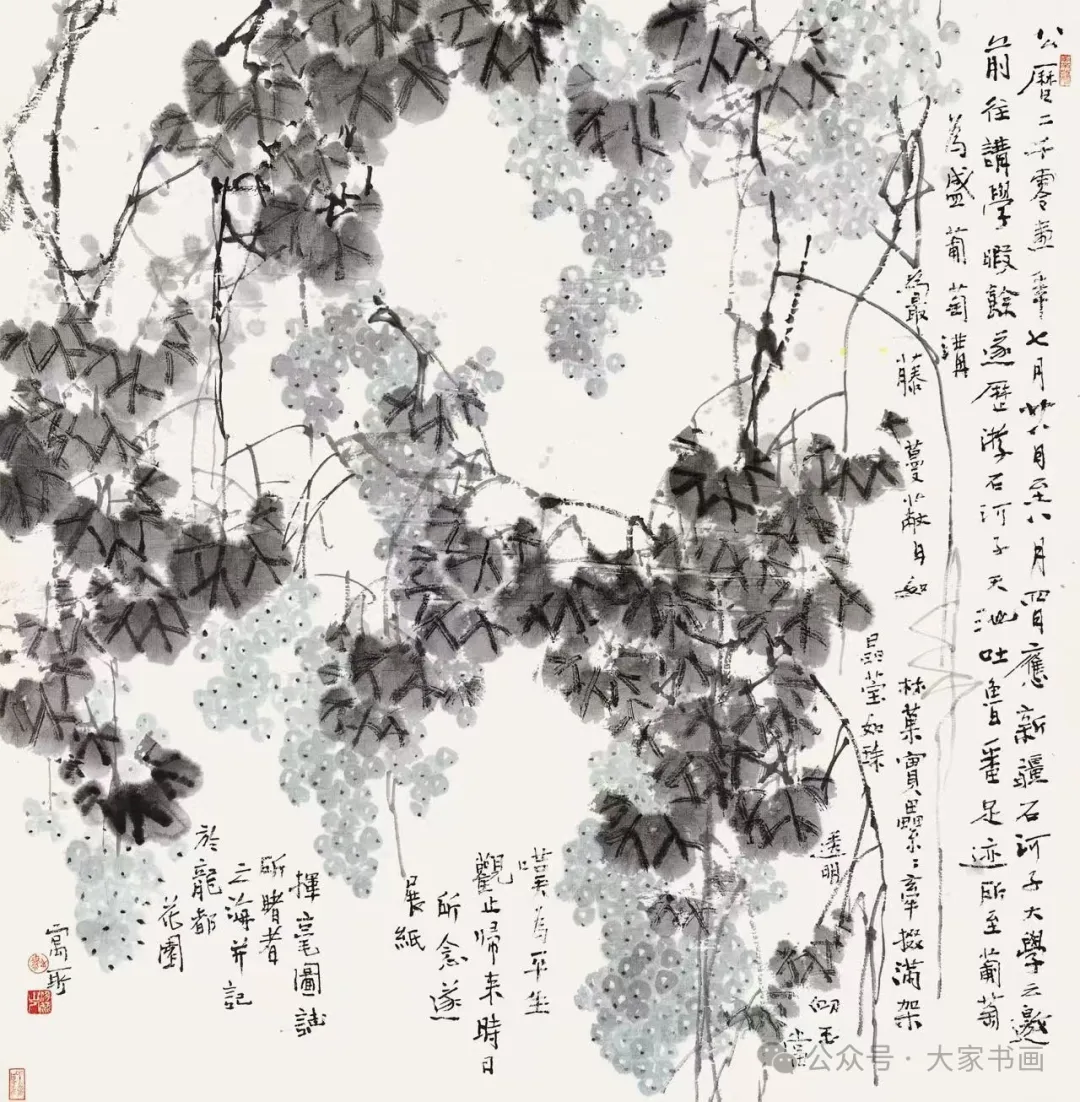 公曆二千零壹年七月廿八日至八月四日應新疆石河子大學之邀
前往講學暇餘遂歷游石河子天池吐魯番足迹所至葡萄
為盛葡萄溝
為最藤蔓蔽日如林菓實纍〻牽掇滿架
晶莹如珠
透明
嘆為平生
觀止歸来時日
所念遂
展紙
揮毫圖誌
所睹者
之海并記
於龍都
花園
寓所
公众号·大家书画